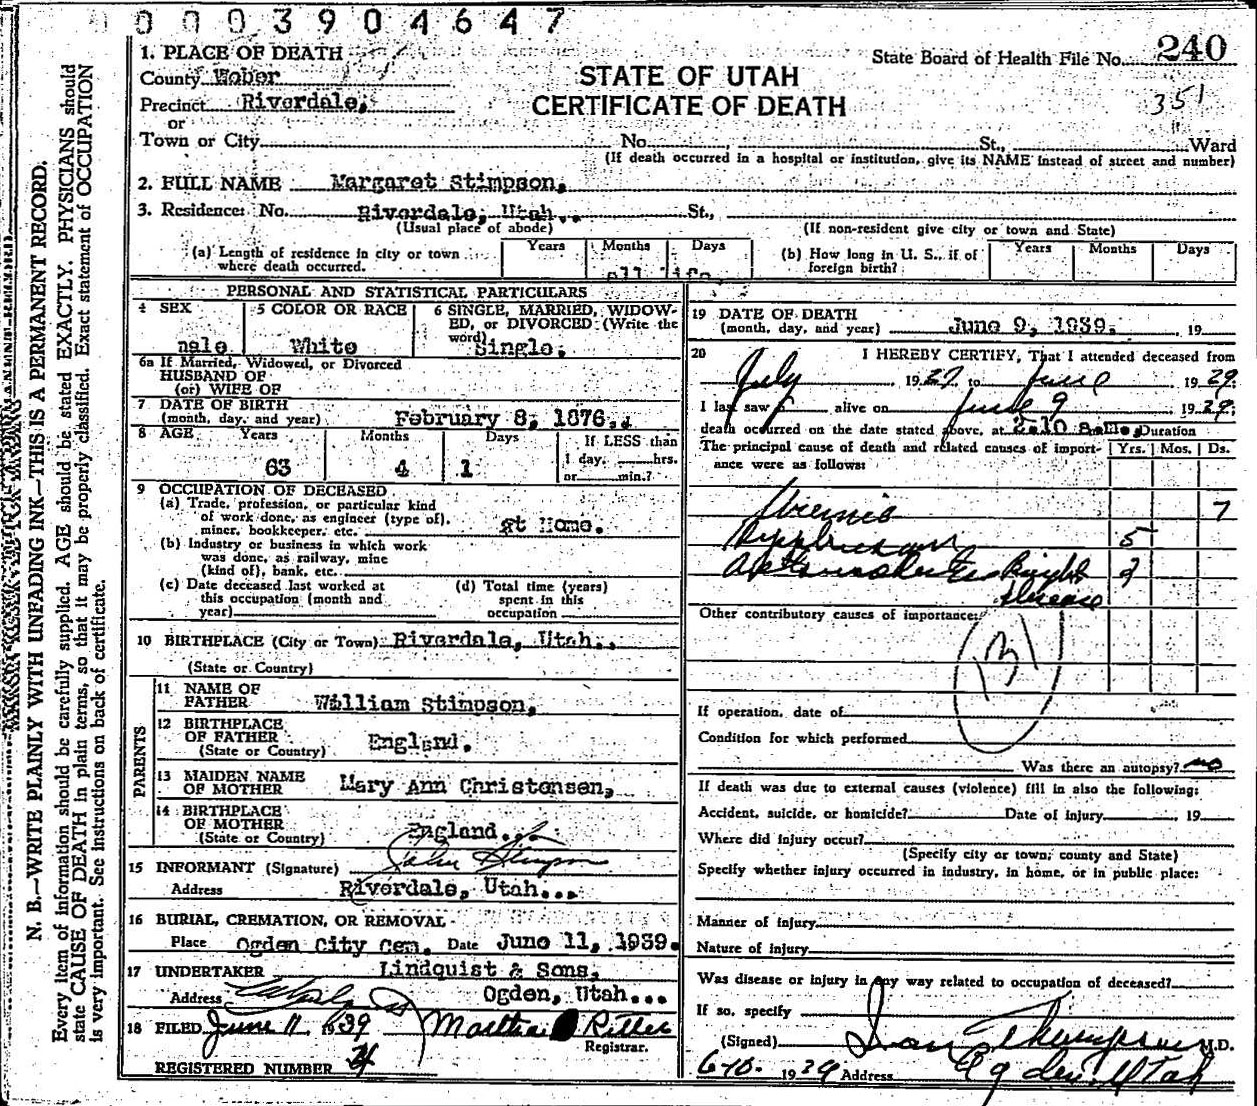 0003904647
1. PLACE OF DEATH
State Board of Health File No. 240
351
County Weber
STATE OF UTAH
Precinct Riverdale,
CERTIFICATE OF DEATH
or
Town or City No. St., Ward
(If death occurred in a hospital or institution, give its NAME instead of street and number)
2. FULL NAME Margaret Stimpson,
3. Residence: No. Riverdale, Utah.. St.,
(Usual place of abode) (If non-resident give city or town and State)
(a) Length of residence in city or town where death occurred. Years Months Days
all life
(b) How long in U. S., if of foreign birth? Years Months Days
PERSONAL AND STATISTICAL PARTICULARS
4 SEX male
5 COLOR OR RACE White
6 SINGLE, MARRIED, WIDOW-
ED, or DIVORCED (Write the
word) Single.
6a If Married, Widowed, or Divorced
HUSBAND OF
(or) WIFE OF
7 DATE OF BIRTH
(month, day, and year) February 8, 1876..
8 AGE Years Months Days If LESS than
63 4 1 1 day, hrs.
or min.?
9 OCCUPATION OF DECEASED
(a) Trade, profession, or particular kind
of work done, as engineer (type of),
miner, bookkeeper, etc. at Home.
(b) Industry or business in which work
was done, as railway, mine
(kind of), bank, etc.
(c) Date deceased last worked at
this occupation (month and
year)
(d) Total time (years)
spent in this
occupation
10 BIRTHPLACE (City or Town) Riverdale, Utah..
(State or Country)
PARENTS
11 NAME OF
FATHER William Stimpson,
12 BIRTHPLACE
OF FATHER England.
(State or Country)
13 MAIDEN NAME
OF MOTHER Mary Ann Christensen,
14 BIRTHPLACE
OF MOTHER
(State or Country) England..
15 INFORMANT (Signature) John Stimpson
Address Riverdale, Utah...
16 BURIAL, CREMATION, OR REMOVAL
Place Ogden City Cem. Date June 11, 1939.
17 UNDERTAKER Lindquist & Sons.
Address Ogden, Utah...
18 FILED June 11 1939 Martha Ritter
Registrar.
REGISTERED NUMBER 24
19 DATE OF DEATH
(month, day, and year) June 9, 1939. , 19
20 I HEREBY CERTIFY, That I attended deceased from
July 1927 to June 1929
I last saw alive on June 9 1929
death occurred on the date stated above, at 2-10 a.m. Duration
The principal cause of death and related causes of import-
ance were as follows: Yrs. Mos. Ds.
Uremia 7
5
Brights 2
disease
Other contributory causes of importance:
131
If operation, date of
Condition for which performed
Was there an autopsy? no
If death was due to external causes (violence) fill in also the following:
Accident, suicide, or homicide? Date of injury , 19
Where did injury occur?
(Specify city or town, county and State)
Specify whether injury occurred in industry, in home, or in public place:
Manner of injury
Nature of injury
Was disease or injury in any way related to occupation of deceased?
If so, specify
(Signed) Ivan Thompson M.D.
6-10- 1939 Address Ogden, Utah
N. B.—WRITE PLAINLY WITH UNFADING INK—THIS IS A PERMANENT RECORD.
Every item of information should be carefully supplied. AGE should be stated EXACTLY. PHYSICIANS should
state CAUSE OF DEATH in plain terms, so that it may be properly classified. Exact statement of OCCUPATION
is very important. See instructions on back of certificate.